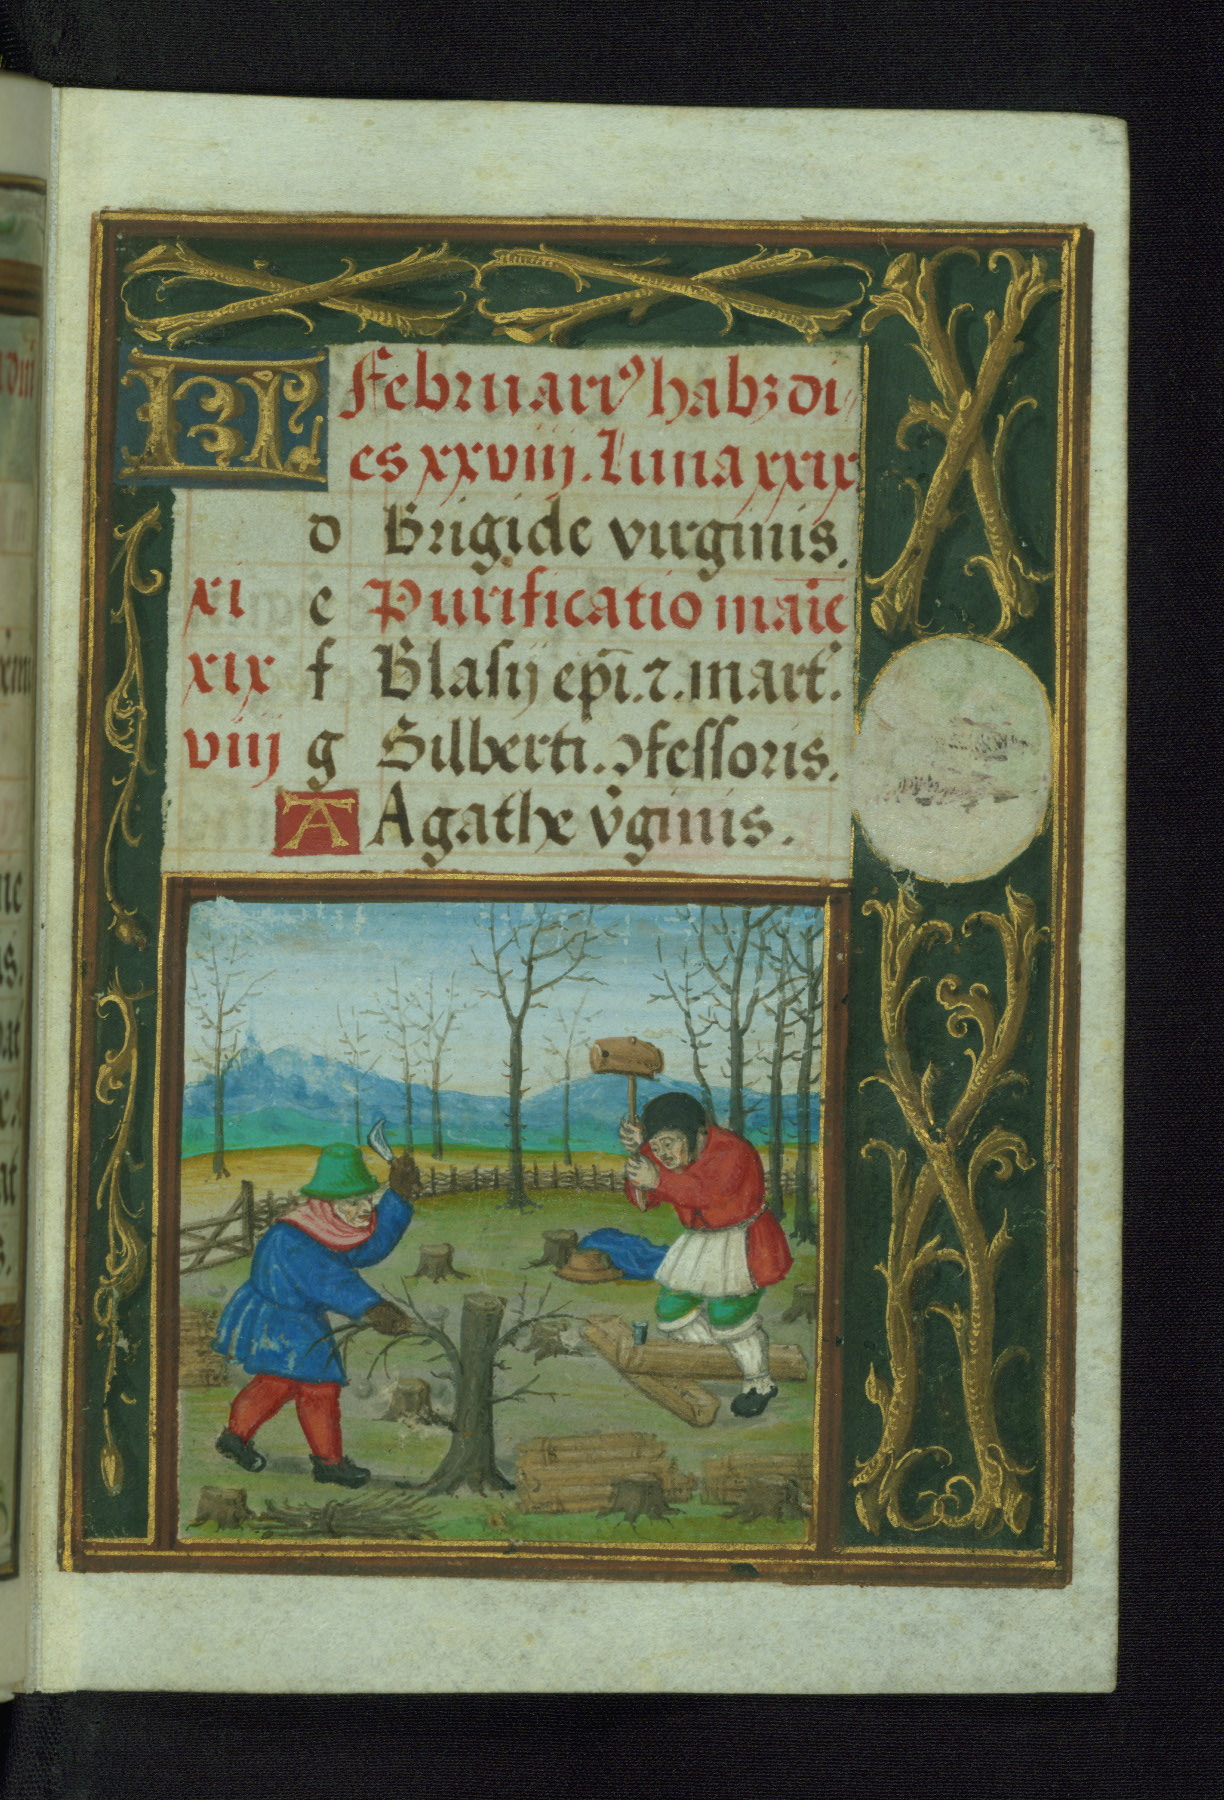 KL Februari⁹ habꝫ di
es xxviij. Luna xxix
d Brigide virginis.
xi e Purificatio marie
xix f Blasij ep̄i. ⁊. mart.
viij g Gilberti. ↄfessoris.
A Agathe v̄ginis.